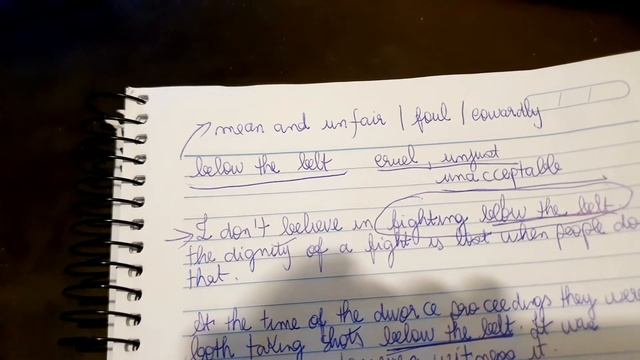 mean and unfair / foul / cowardly
below the belt cruel, unjust
unacceptable
I don't believe in fighting below the belt
the dignity of a fight is lost when people do
that.
At the time of the divorce proceedings they were
both taking shots below the belt. It was